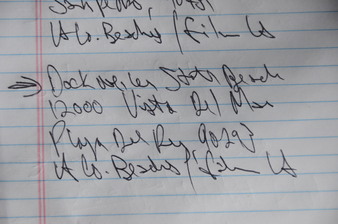 San Pedro,
LA Co. Beaches / Film LA
Dockweiler State Beach
12000 Vista Del Mar
Playa Del Rey 90293
LA Co. Beaches / Film LA